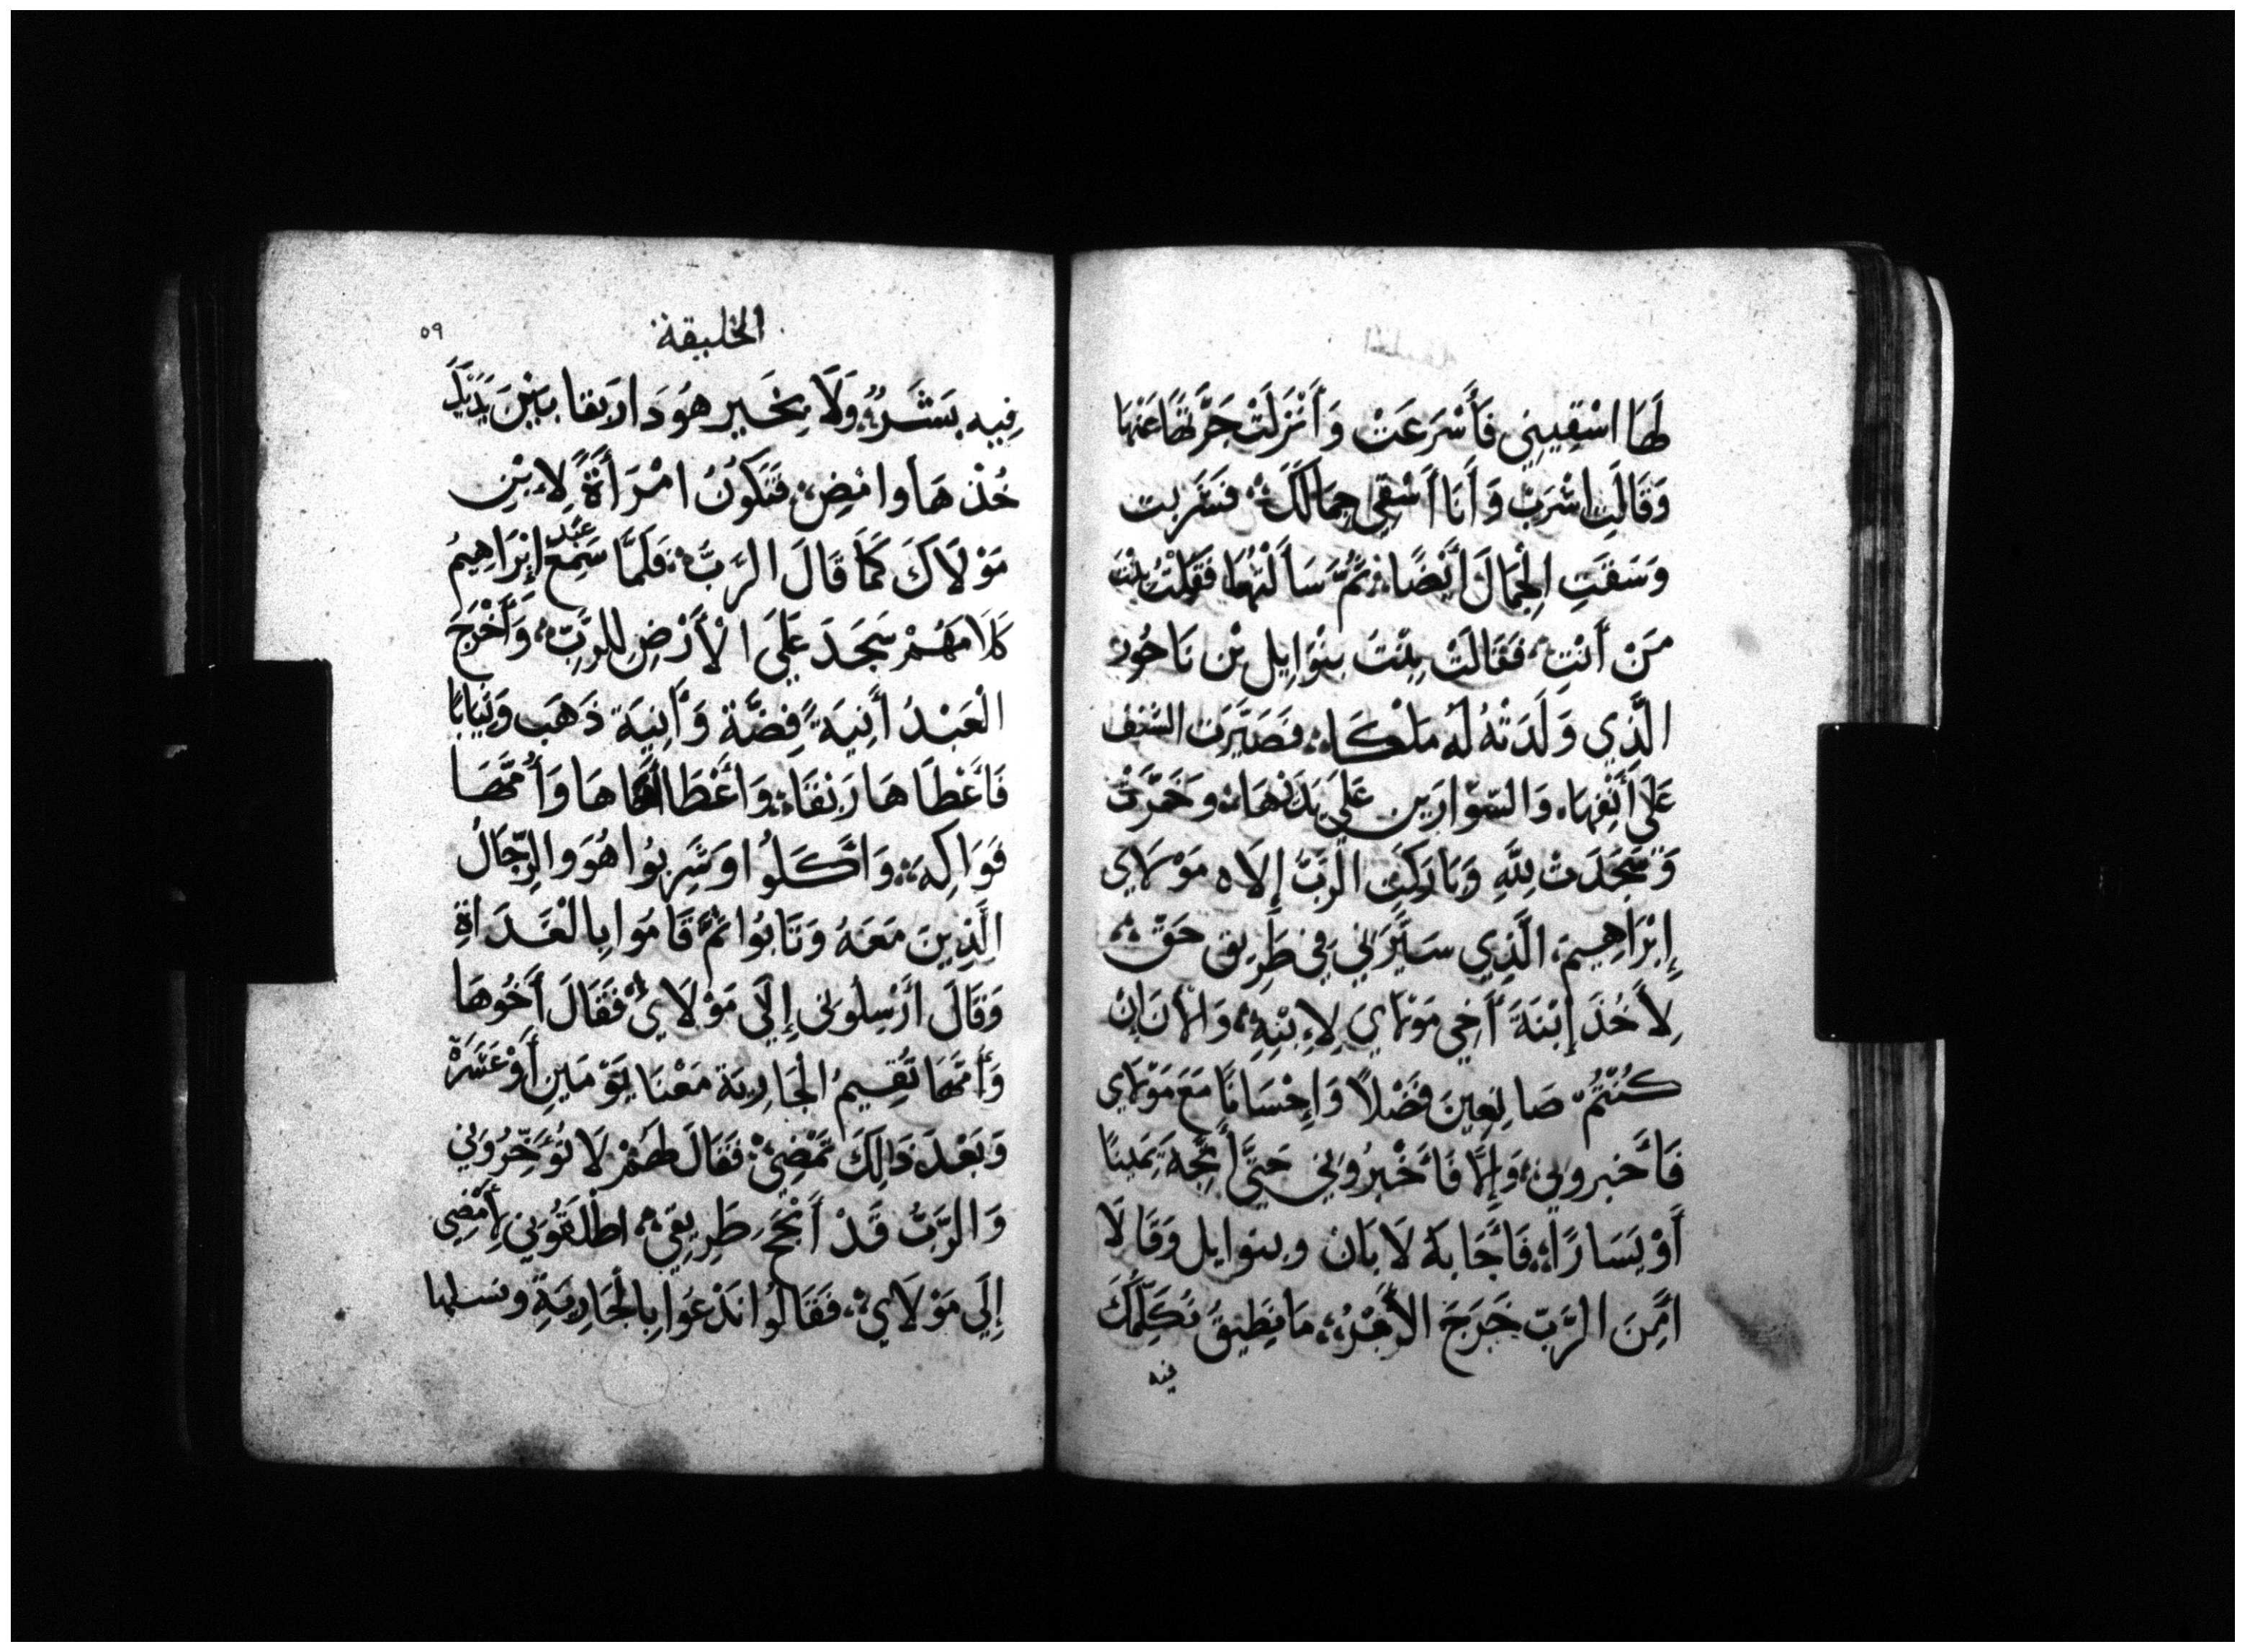 لَهَا اسْقِينِي فَأَسْرَعَتْ وَأَنْزَلَتْ جَرَّتَهَا عَنْهَا
وَقَالَتِ اشْرَبْ وَأَنَا أَسْقِي جِمَالَكَ فَشَرِبت
وَسَقَتِ الْجِمَالَ أَيْضًا ثُمَّ سَأَلْتُهَا فَقُلْتُ بِنْت
مَنْ أَنْتِ فَقَالَتْ بِنْتَ بتْوَايِل بْن نَاحُور
الَّذِي وَلَدَتْهُ لَهُ مَلْكَا فَصَيَّرَت الشنف
عَلَى أَنْفِهَا وَالسّوَارَيْن عَلَى يَدَيْهَا وَخَرَّتْ
وَسَجَدَتْ لِلَّهِ وَبَارَكْتُ الرَبُّ إِلَاه مَوْلَاي
إِبْرَاهِيمَ الَّذِي سَيَّرَنِي فِي طَرِيق حَقّ
لِأَخُذَ إِبْنَةَ أَخِي مَوْلَاي لِابْنِهِ وَالْان إِنْ
كُنْتُمْ صَانِعِينَ فَضْلًا وَإِحْسَانًا مَعَ مَوْلَاي
فَأَخبرونِي وَإِلَّا فَأَخْبِرُونِي حَتَّى أَتَّجِهَ يَمِينًا
أَوْ يَسَارًا فَأَجَابَهُ لَابَان وبتوايل وَقَالَا
امِّنَ الرَّبّ خَرَجَ الأَمْرُ مَا نطِيقُ نكَلِّمُكَ
فيه
الخليقة
٥٩
فِيهِ بِشَرٍّ وَلَا بِخَيرٍ هوَدَا رَبقا بَيْنَ يَدَيْكَ
خُذْهَا وامْضِ فَتَكُونُ امْرَأَةً لِابْنِ
مَوْلَاكَ كَمَا قَالَ الرَّبُّ فَلَمَّا سَمِعَ عَبْد إِبْرَاهِيمُ
كَلَامَهُمْ سَجَدَ عَلَى الْأَرْضِ لِلرَّبِّ وَأَخْرَجَ
الْعَبْدُ أَنِيَةً فِضَّة وَأَنِيَة ذَهَب وَثِيَابًا
فَأَعْطَاهَا رَبقَا وَأَعْطَا أَخَاهَا وَأُمَّهَا
فَوَاكِهَ وَأَكَلُوا وَشَرِبُوا هُوَ وَالرِّجَالُ
الَّذِينَ مَعَهُ وَبَاتُوا ثُمَّ قَامُوا بِالْغَدَاةِ
وَقَالَ أَرْسِلُونِي إِلَى مَوْلَايَ فَقَالَ أَخُوهَا
وَأُمّهَا تُقِيمُ الْجَارِيَة مَعْنَا يَوْمَينِ أَوْ عَشَرَةً
وَبَعْدَ ذَالِكَ تَمْضِي فَقَالَ لَهُمْ لَا تُوَخِّرُونِي
وَالرَّبُّ قَدْ أَنْجَحَ طَرِيقِي اطْلقُونِي لأَمْضِي
إِلَى مَوْلَايَ فَقَالُوا نَدْعُوا بِالْجَارِيَةِ ونسلها